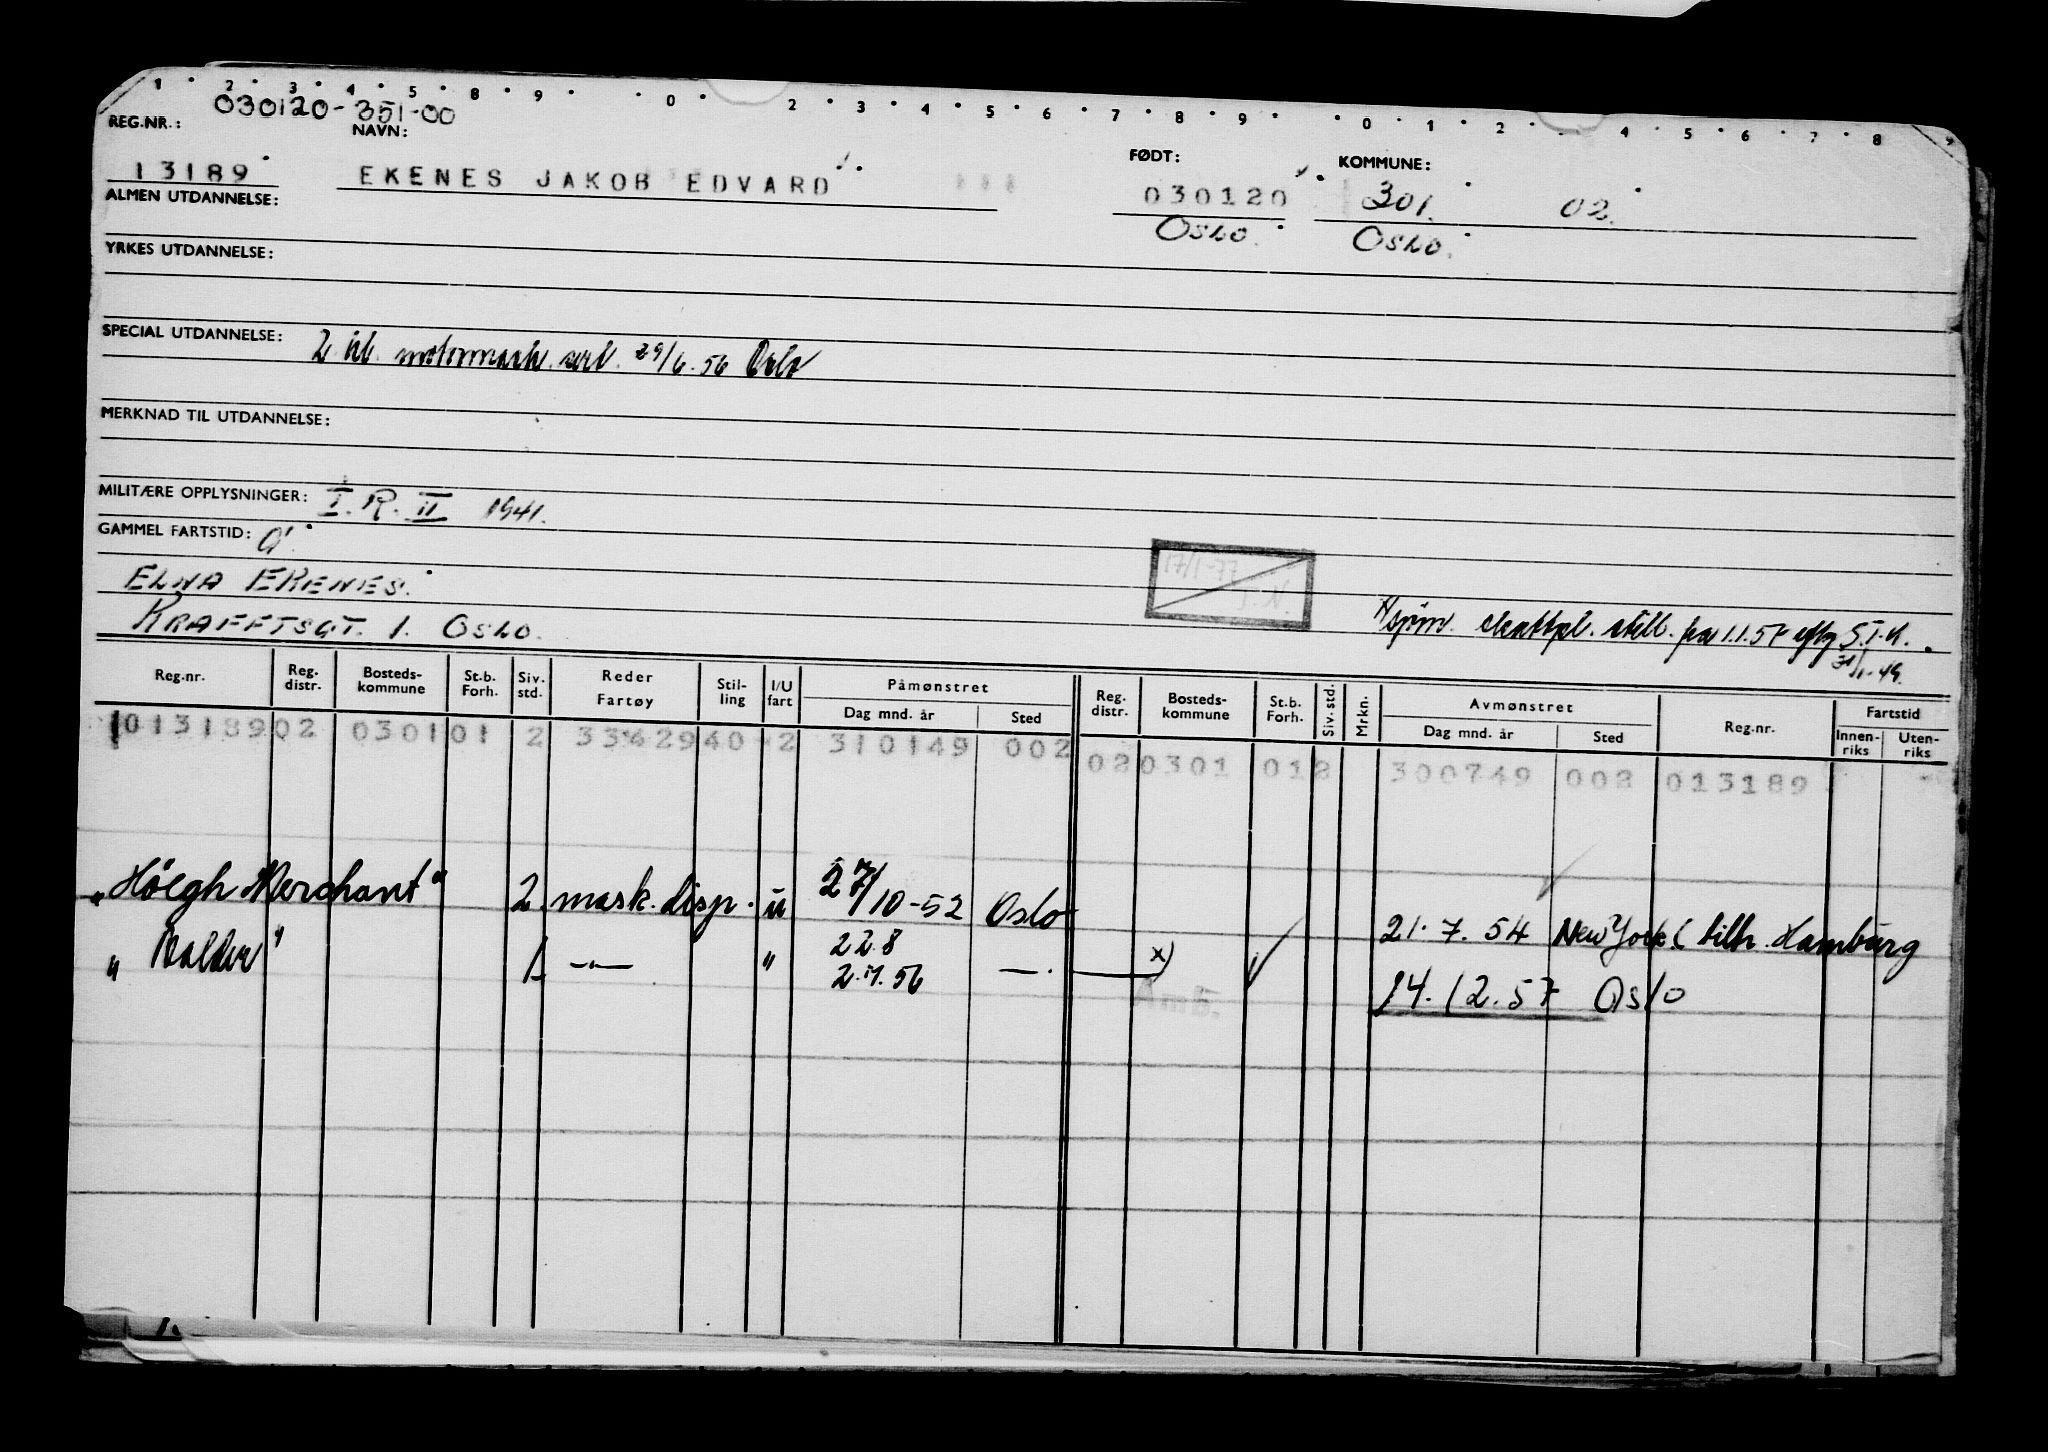 1 2 3 4 5 8 9 0 2 3 4 5 6 7 8 9 0 1 2 4 5 6 7 8 9
030120-351-00
REG.NR.: NAVN: FØDT: KOMMUNE:
13189 EKENES JAKOB EDVARD 030120 301. 02.
ALMEN UTDANNELSE: OSLO. OSLO.
YRKES UTDANNELSE:
SPECIAL UTDANNELSE: 2. kl. motormask. sert. 29/6.56 Oslo
MERKNAD TIL UTDANNELSE:
MILITÆRE OPPLYSNINGER: I.R. II 1941.
GAMMEL FARTSTID: 0
17/1-77
ELNA EKENES.
KRAFFTSGT. 1. OSLO.
x) sjøm. skattpl. still. fra 1.1.57
31/1-49.
Reg.nr. Reg. distr. Bosteds- kommune St.b. Forh. Siv. std. Reder Fartøy Stil- ling I/U fart Påmønstret Dag mnd. år Sted Reg. distr. Bosteds- kommune St.b. Forh. Siv. std. Mrkn. Avmønstret Dag mnd. år Sted Reg.nr. Fartstid Innen- riks Uten- riks
013189 02 0301 01 2 3342940 2 310149 002 02 0301 01 2 300749 002 013189
"Höegh Merchant" 2. mask. disp. u 27/10-52 Oslo 21.7.54 New York (tilh. Hamburg
"Balder" 1. —"— " 22.8 x)
2.7.56 —. Amb. 14.12.57 Oslo